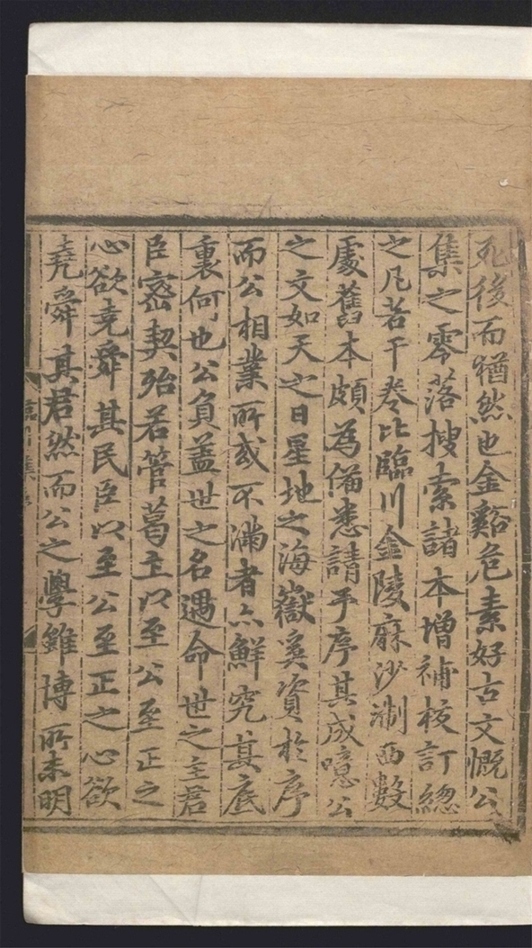 死後而猶然也金谿危素好古文慨公之
集之零落搜索諸本增補校訂總
之凡若干卷比臨川金陵麻沙淛西數
處舊本頗為備悉請予序其成噫公
之文如天之日星地之海嶽奚資於序
而公相業所或不滿者亦鮮究其底
裏何也公負蓋世之名遇命世之主君
臣密契殆若管葛主以至公至正之
心欲堯舜其民臣以至公至正之心欲
堯舜其君然而公之學雖博所未明
臨川集序